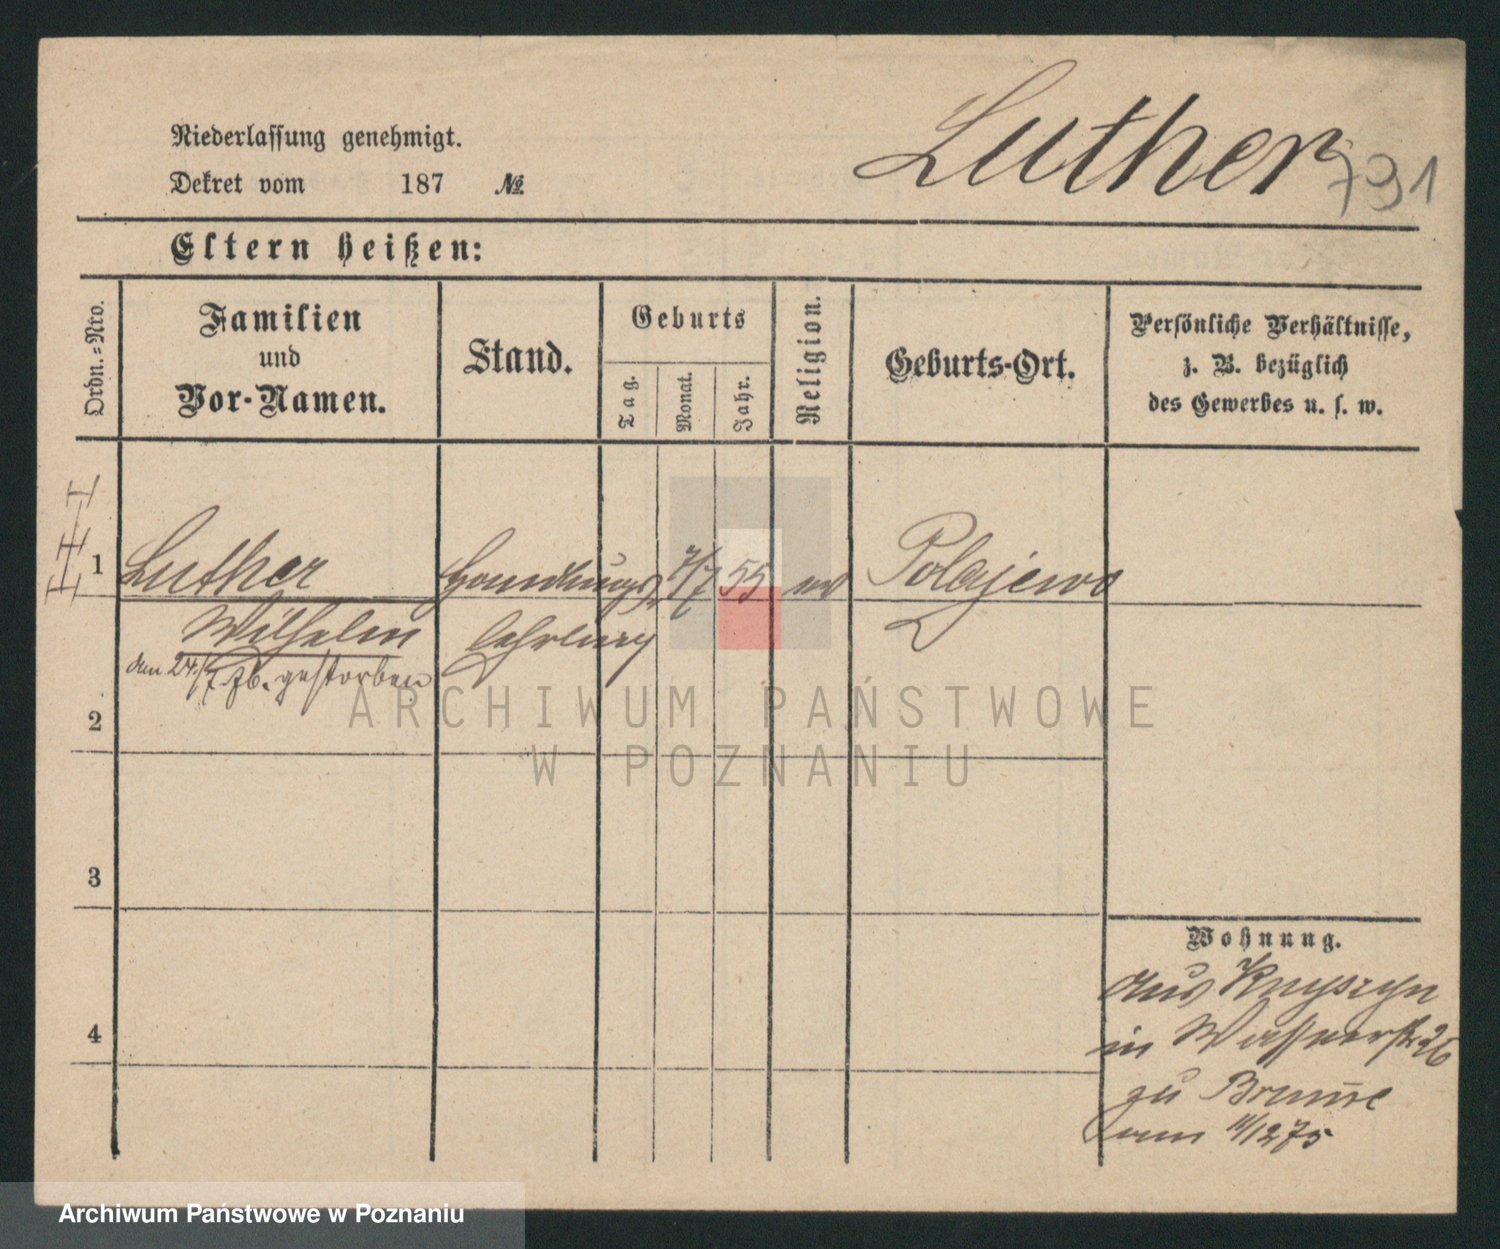 Luther
791
Niederlassung genehmigt.
Dekret vom 187 №
Eltern heißen:
Ordn.=Nro.
Familien
und
Vor-Namen.
Stand.
Geburts
Tag.
Monat.
Jahr.
Religion.
Geburts-Ort.
Persönliche Verhältnisse,
z. B. bezüglich
des Gewerbes u. s. w.
1 Luther Handlungs 7/7 55 Polajewo
Wilhelm lehrling
den 24/7. 76. gestorben
2
3
4
Wohnung.
aus
in Wasserstr 26
zu
am 11/12 75
ARCHIWUM PAŃSTWOWE
W POZNANIU
Archiwum Państwowe w Poznaniu